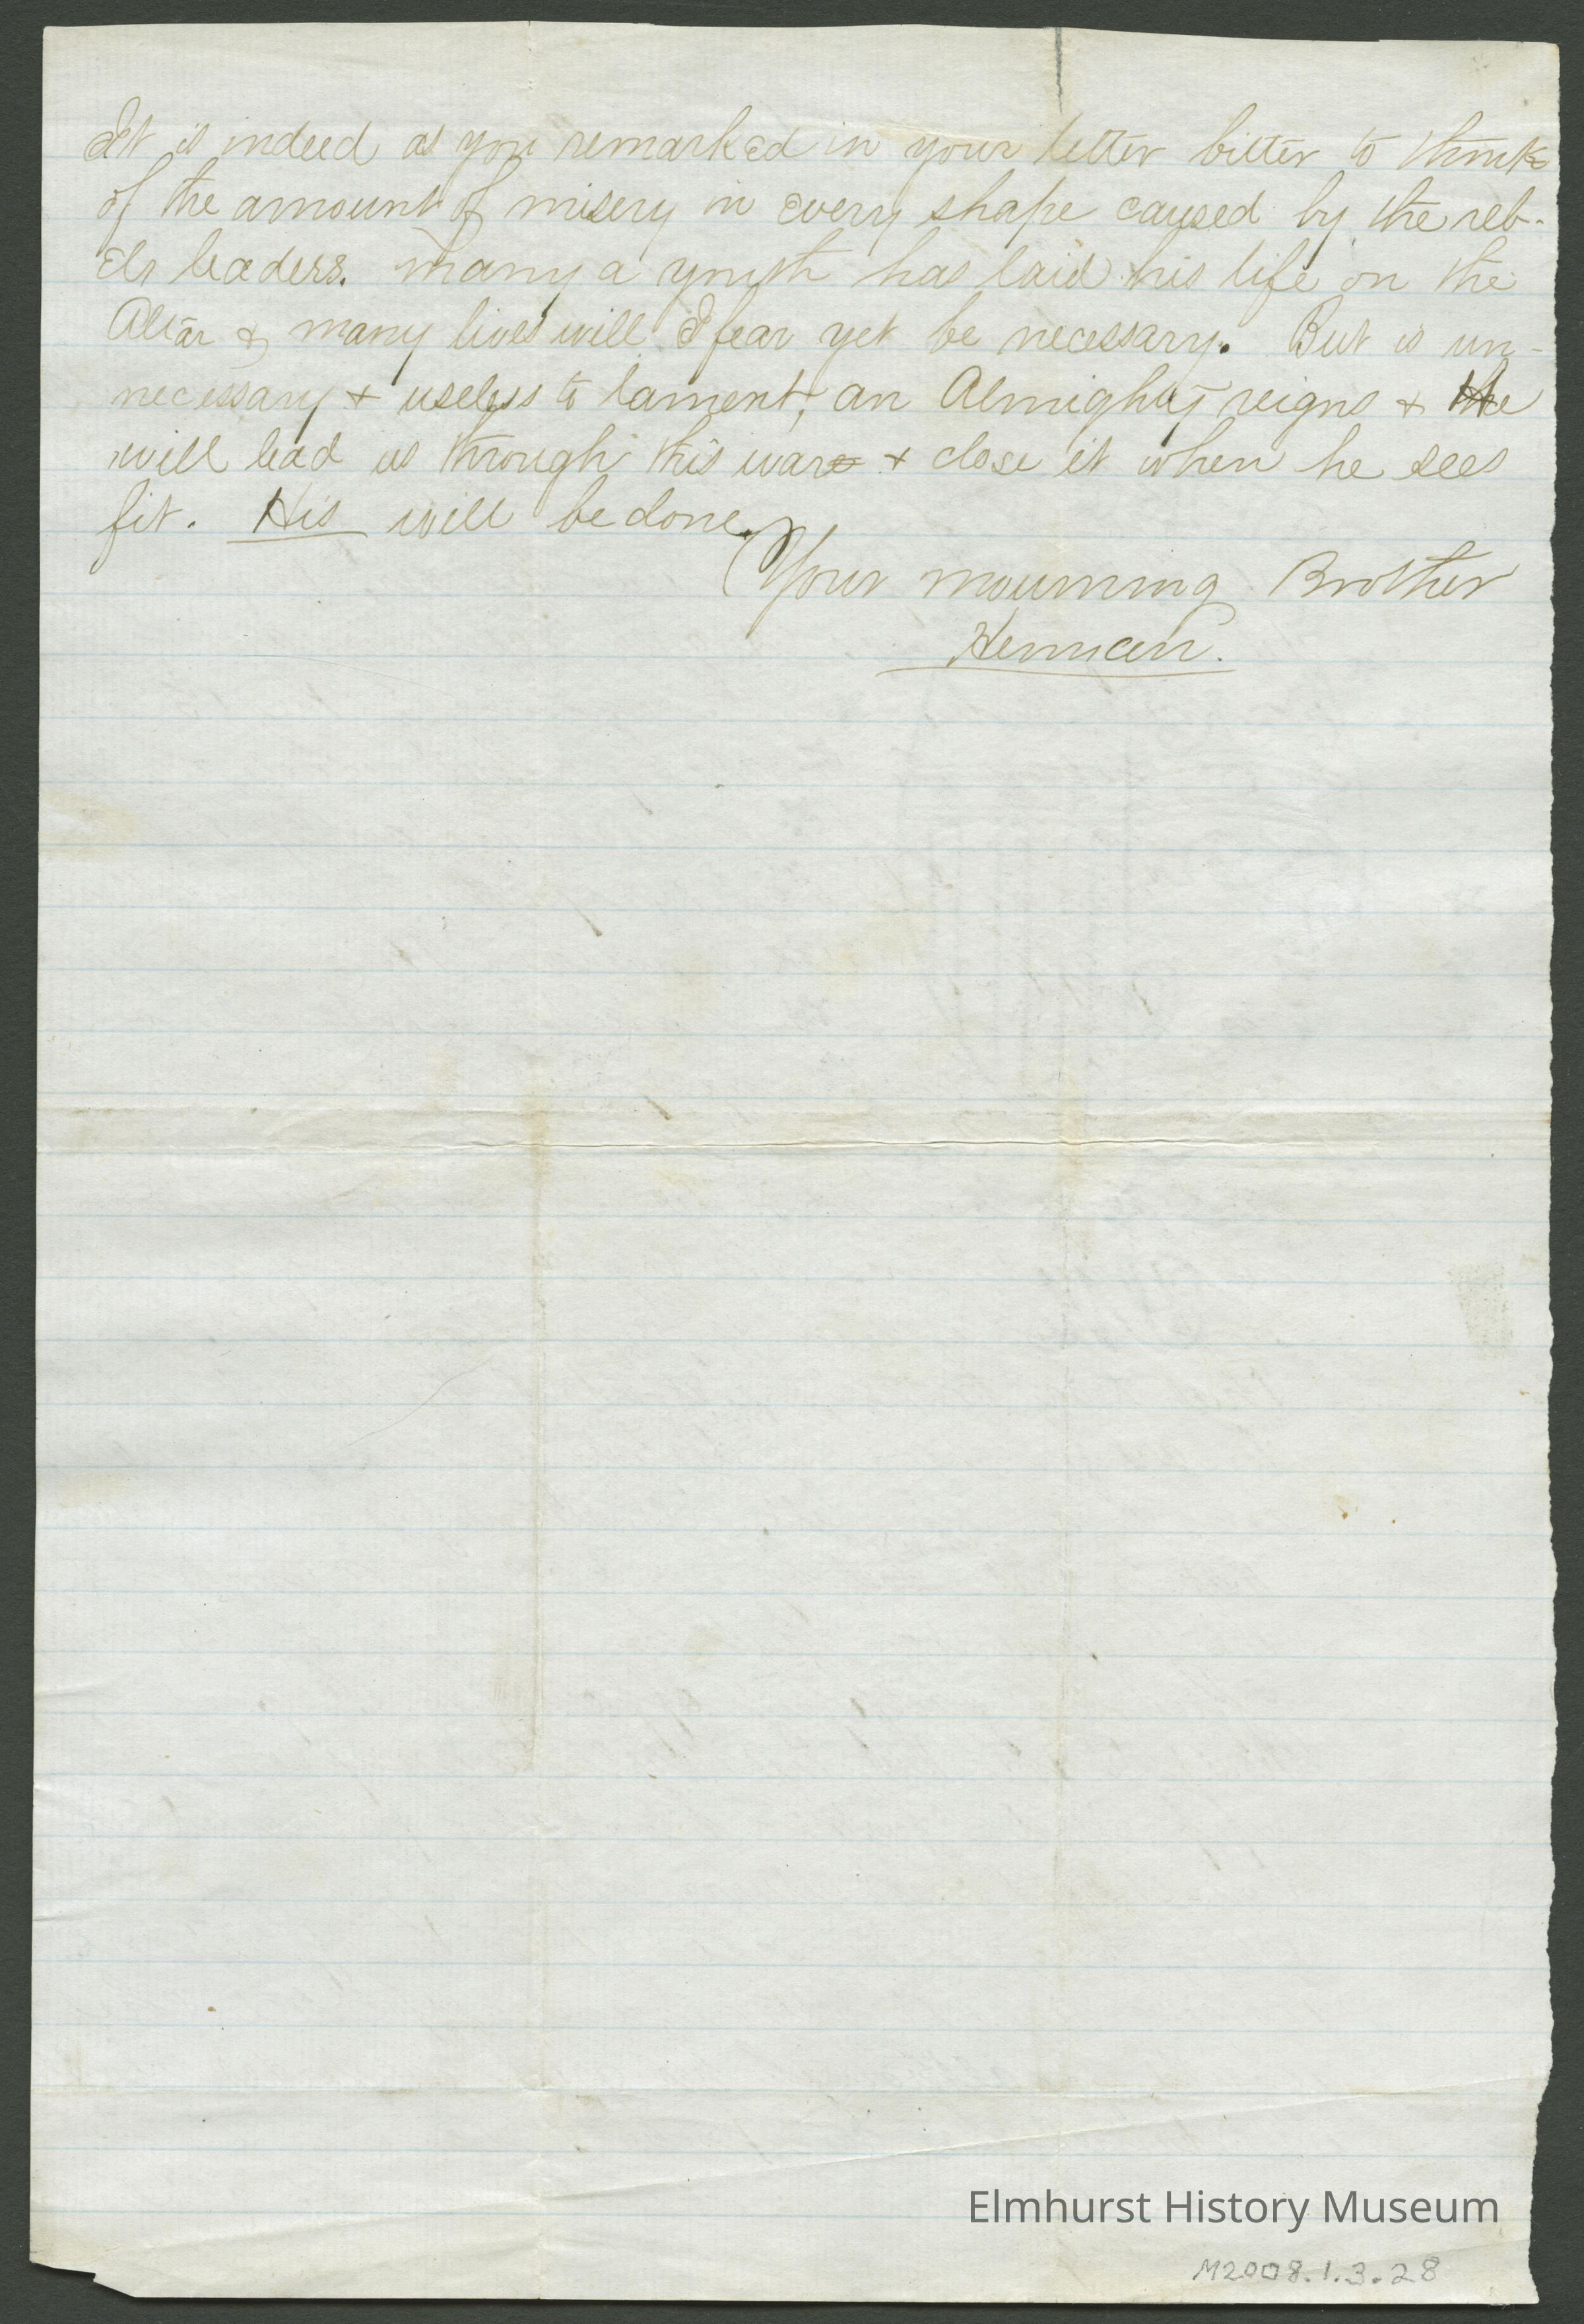 It is indeed as you remarked in your letter bitter to think
of the amount of misery in every shape caused by the reb-
els leaders. Many a youth has laid his life on the
Altar & many lives will I fear yet be necessary. But is un-
necessary & useless to lament, an Almighty reigns & He
will lead us through this war & close it when he sees
fit. His will be done.
Your mourning Brother
Herman.
Elmhurst History Museum
M2008.1.3.28